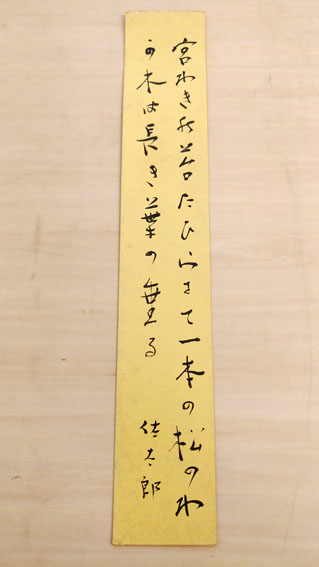 宮わきの苔たひらにて一本の松のわ
か木は長き葉の垂る
佐太郎